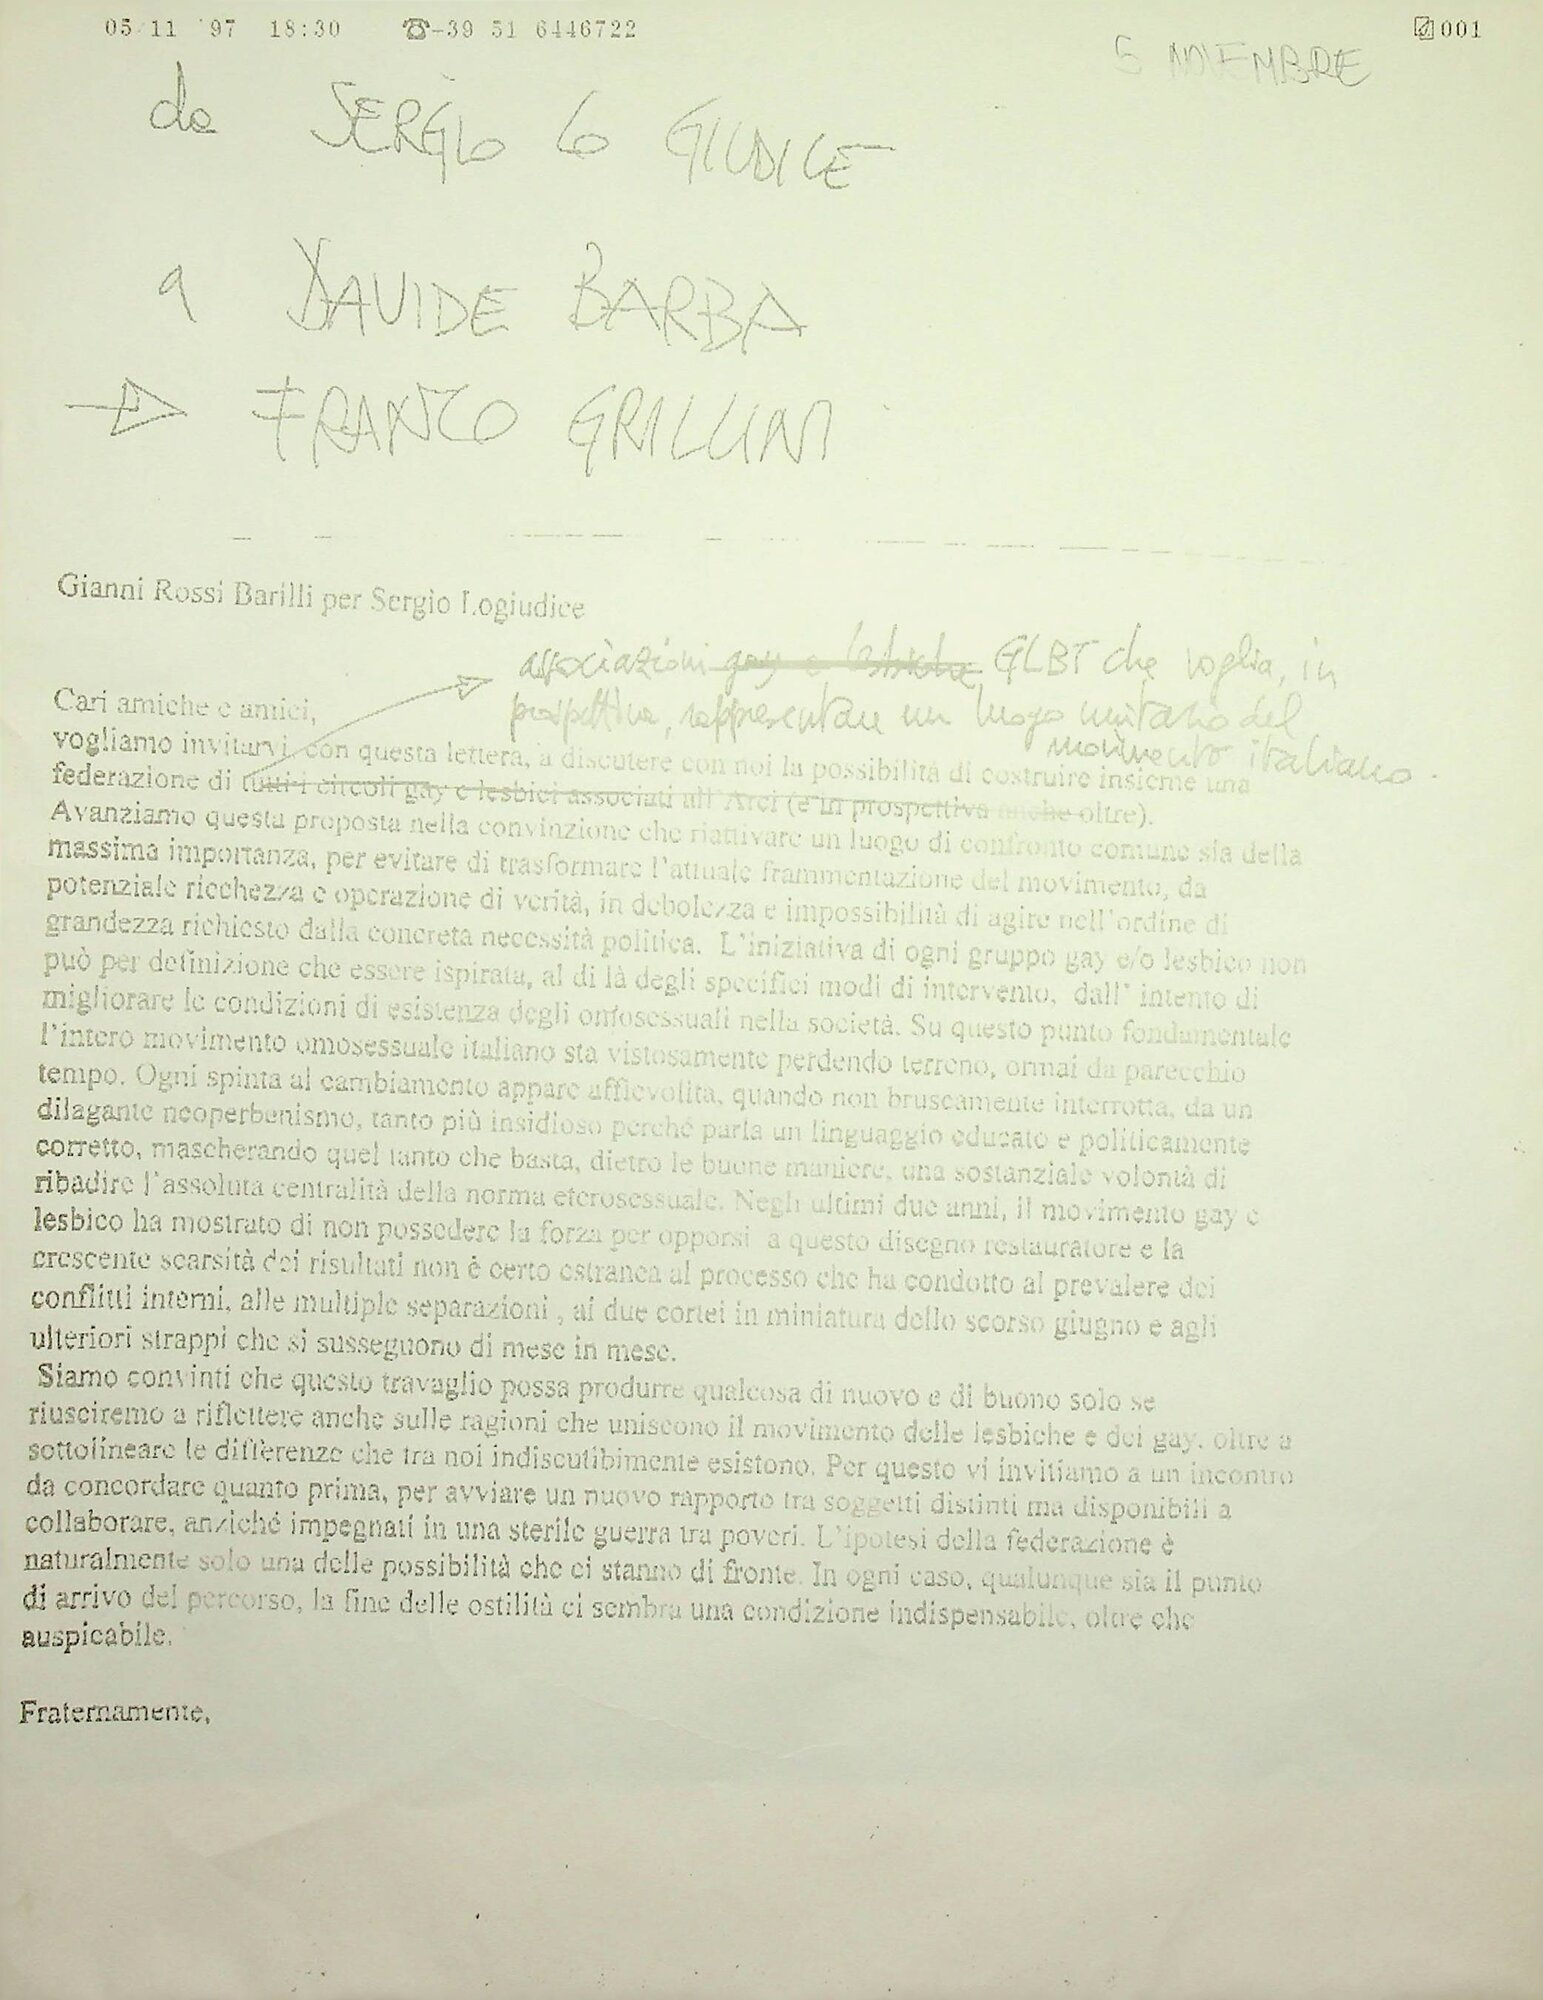 05/11 '97 18:30 ☎-39 51 6446722 001
5 NOVEMBRE
da SERGIO LO GIUDICE
a DAVIDE BARBA
→ FRANCO GRILLINI
Gianni Rossi Barilli per Sergio Logiudice
associazioni gay e lesbiche GLBT che voglia, in
prospettiva, rappresentare un luogo unitario del
movimento italiano.
Cari amiche e amici,
vogliamo invitarvi, con questa lettera, a discutere con noi la possibilità di costruire insieme una
federazione di tutti i circoli gay e lesbici associati all'Arci (e in prospettiva anche oltre).
Avanziamo questa proposta nella convinzione che riattivare un luogo di confronto comune sia della
massima importanza, per evitare di trasformare l'attuale frammentazione del movimento, da
potenziale ricchezza e operazione di verità, in debolezza e impossibilità di agire nell'ordine di
grandezza richiesto dalla concreta necessità politica. L'iniziativa di ogni gruppo gay e/o lesbico non
può per definizione che essere ispirata, al di là degli specifici modi di intervento, dall' intento di
migliorare le condizioni di esistenza degli omosessuali nella società. Su questo punto fondamentale
l'intero movimento omosessuale italiano sta vistosamente perdendo terreno, ormai da parecchio
tempo. Ogni spinta al cambiamento appare affievolita, quando non bruscamente interrotta, da un
dilagante neoperbenismo, tanto più insidioso perché parla un linguaggio educato e politicamente
corretto, mascherando quel tanto che basta, dietro le buone maniere, una sostanziale volontà di
ribadire l'assoluta centralità della norma eterosessuale. Negli ultimi due anni, il movimento gay e
lesbico ha mostrato di non possedere la forza per opporsi a questo disegno restauratore e la
crescente scarsità dei risultati non è certo estranea al processo che ha condotto al prevalere dei
conflitti interni, alle multiple separazioni , ai due cortei in miniatura dello scorso giugno e agli
ulteriori strappi che si susseguono di mese in mese.
Siamo convinti che questo travaglio possa produrre qualcosa di nuovo e di buono solo se
riusciremo a riflettere anche sulle ragioni che uniscono il movimento delle lesbiche e dei gay, oltre a
sottolineare le differenze che tra noi indiscutibimente esistono. Per questo vi invitiamo a un incontro
da concordare quanto prima, per avviare un nuovo rapporto tra soggetti distinti ma disponibili a
collaborare, anziché impegnati in una sterile guerra tra poveri. L'ipotesi della federazione è
naturalmente solo una delle possibilità che ci stanno di fronte. In ogni caso, qualunque sia il punto
di arrivo del percorso, la fine delle ostilità ci sembra una condizione indispensabile, oltre che
auspicabile.
Fraternamente,